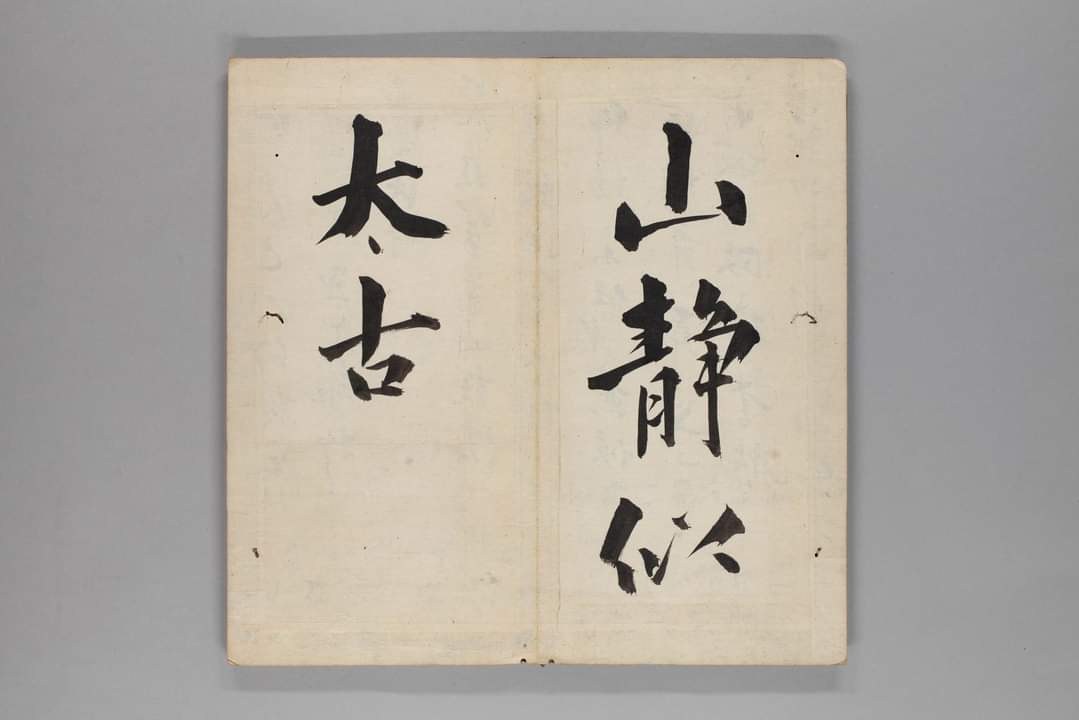 山静似
太古